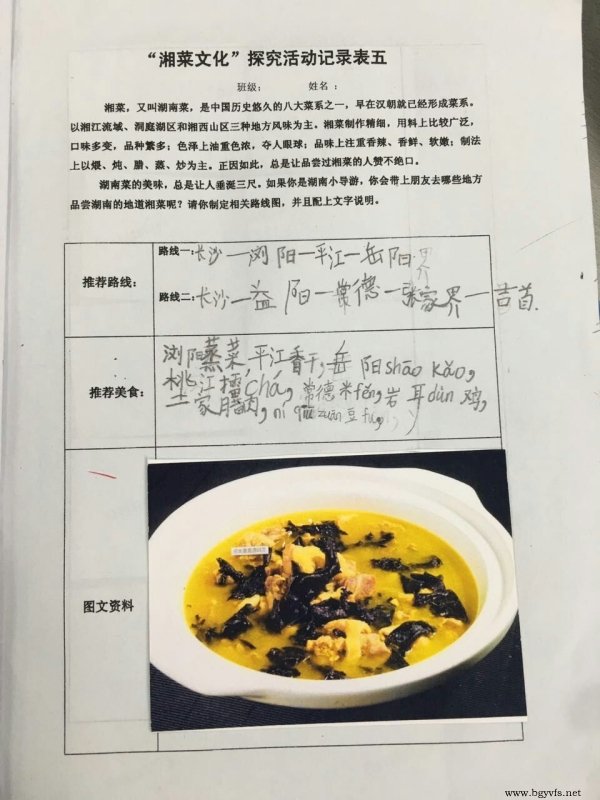 “湘菜文化”探究活动记录表五
班级： 姓名：
湘菜，又叫湖南菜，是中国历史悠久的八大菜系之一，早在汉朝就已经形成菜系。
以湘江流域、洞庭湖区和湘西山区三种地方风味为主。湘菜制作精细，用料上比较广泛，
口味多变，品种繁多；色泽上油重色浓，夺人眼球；品味上注重香辣、香鲜、软嫩；制法
上以煨、炖、腊、蒸、炒为主。正因如此，总是让品尝过湘菜的人赞不绝口。
湖南菜的美味，总是让人垂涎三尺。如果你是湖南小导游，你会带上朋友去哪些地方
品尝湖南的地道湘菜呢？请你制定相关路线图，并且配上文字说明。
推荐路线：
路线一：长沙—浏阳—平江—岳阳
路线二：长沙—益阳—常德—张家界—吉首
推荐美食：
浏阳蒸菜，平江香干，岳阳shāo kǎo，
桃江擂chá，常德米fěn，岩耳dùn鸡，
土家腊肉，ní qiū zuān豆fu
图文资料
www.bgyvfs.net